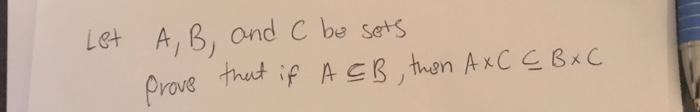 Let A, B, and C be sets
Prove that if A ⊆ B, then A × C ⊆ B × C